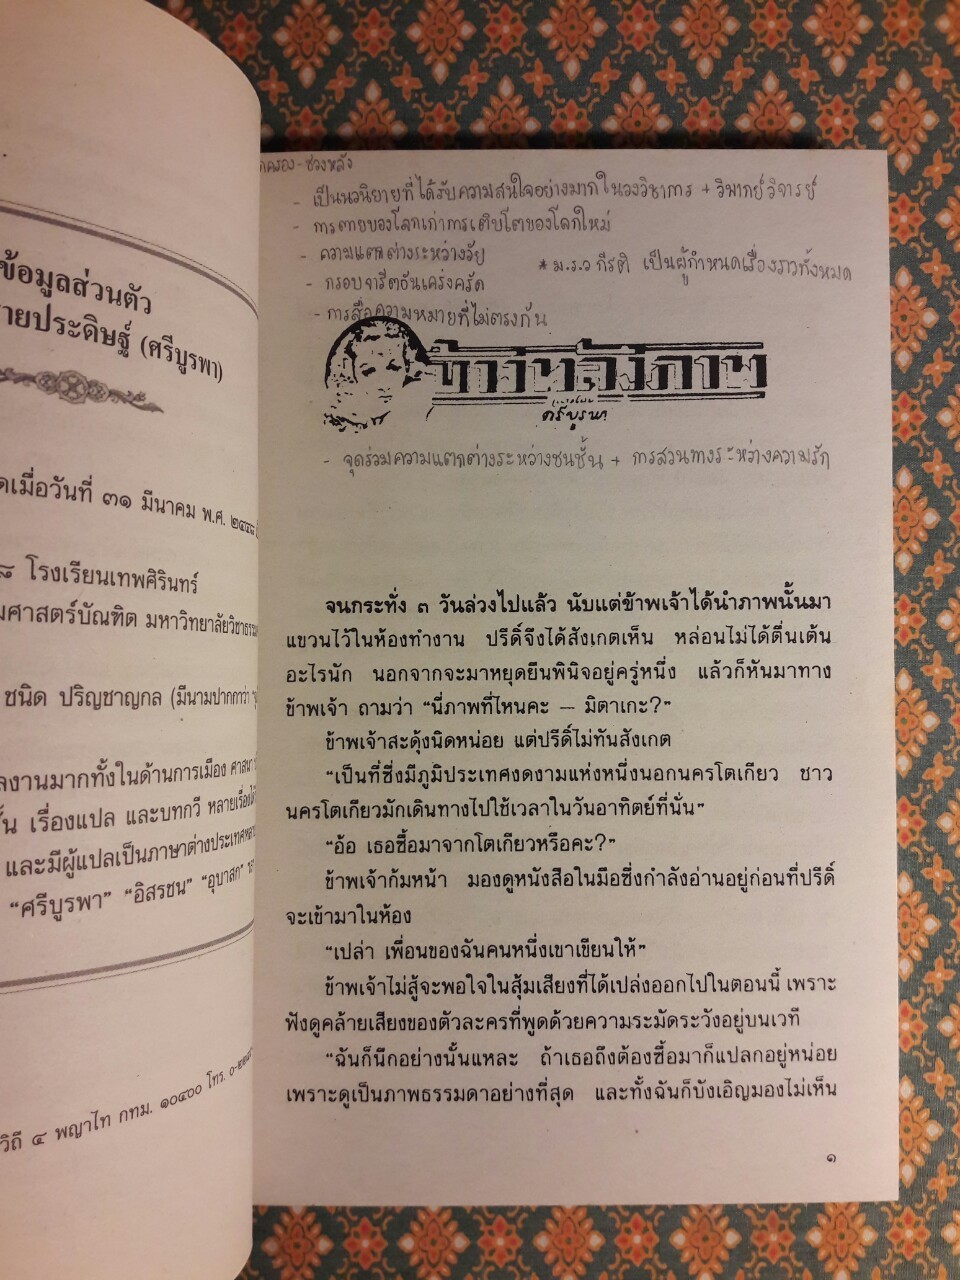 ข้อมูลส่วนตัว
ายประดิษฐ์ (ศรีบูรพา)
ดเมื่อวันที่ ๓๑ มีนาคม พ.ศ. ๒๔๔๘
๘ โรงเรียนเทพศิรินทร์
มศาสตร์บัณฑิต มหาวิทยาลัยวิชาธรรม
ชนิด ปริญชาญกล (มีนามปากกาว่า
ลงานมากทั้งในด้านการเมือง ศาสนา
ั้น เรื่องแปล และบทกวี หลายเรื่องได้
และมีผู้แปลเป็นภาษาต่างประเทศ
“ศรีบูรพา” “อิสรชน” “อุบาสก”
วิถี ๔ พญาไท กทม. ๑๐๔๐๐ โทร.
กครอง - ช่วงหลัง
- เป็นนวนิยายที่ได้รับความสนใจอย่างมากในวงวิชาการ + วิพากย์วิจารย์
- การตายของโลกเก่าการเติบโตของโลกใหม่
- ความแตกต่างระหว่างวัย
* ม.ร.ว กีรติ เป็นผู้กำหนดเรื่องราวทั้งหมด
- กรอบจารีตอันเคร่งครัด
- การสื่อความหมายที่ไม่ตรงกัน
ข้างหลังภาพ
ศรีบูรพา
- จุดร่วมความแตกต่างระหว่างชนชั้น + การสวนทางระหว่างความรัก
จนกระทั่ง ๓ วันล่วงไปแล้ว นับแต่ข้าพเจ้าได้นำภาพนั้นมา
แขวนไว้ในห้องทำงาน ปรีดิ์จึงได้สังเกตเห็น หล่อนไม่ได้ตื่นเต้น
อะไรนัก นอกจากจะมาหยุดยืนพินิจอยู่ครู่หนึ่ง แล้วก็หันมาทาง
ข้าพเจ้า ถามว่า “นี่ภาพที่ไหนคะ – มิตาเกะ?”
ข้าพเจ้าสะดุ้งนิดหน่อย แต่ปรีดิ์ไม่ทันสังเกต
“เป็นที่ซึ่งมีภูมิประเทศงดงามแห่งหนึ่งนอกนครโตเกียว ชาว
นครโตเกียวมักเดินทางไปใช้เวลาในวันอาทิตย์ที่นั่น”
“อ้อ เธอซื้อมาจากโตเกียวหรือคะ?”
ข้าพเจ้าก้มหน้า มองดูหนังสือในมือซึ่งกำลังอ่านอยู่ก่อนที่ปรีดิ์
จะเข้ามาในห้อง
“เปล่า เพื่อนของฉันคนหนึ่งเขาเขียนให้”
ข้าพเจ้าไม่สู้จะพอใจในสุ้มเสียงที่ได้เปล่งออกไปในตอนนี้ เพราะ
ฟังดูคล้ายเสียงของตัวละครที่พูดด้วยความระมัดระวังอยู่บนเวที
“ฉันก็นึกอย่างนั้นแหละ ถ้าเธอถึงต้องซื้อมาก็แปลกอยู่หน่อย
เพราะดูเป็นภาพธรรมดาอย่างที่สุด และทั้งฉันก็บังเอิญมองไม่เห็น
๑